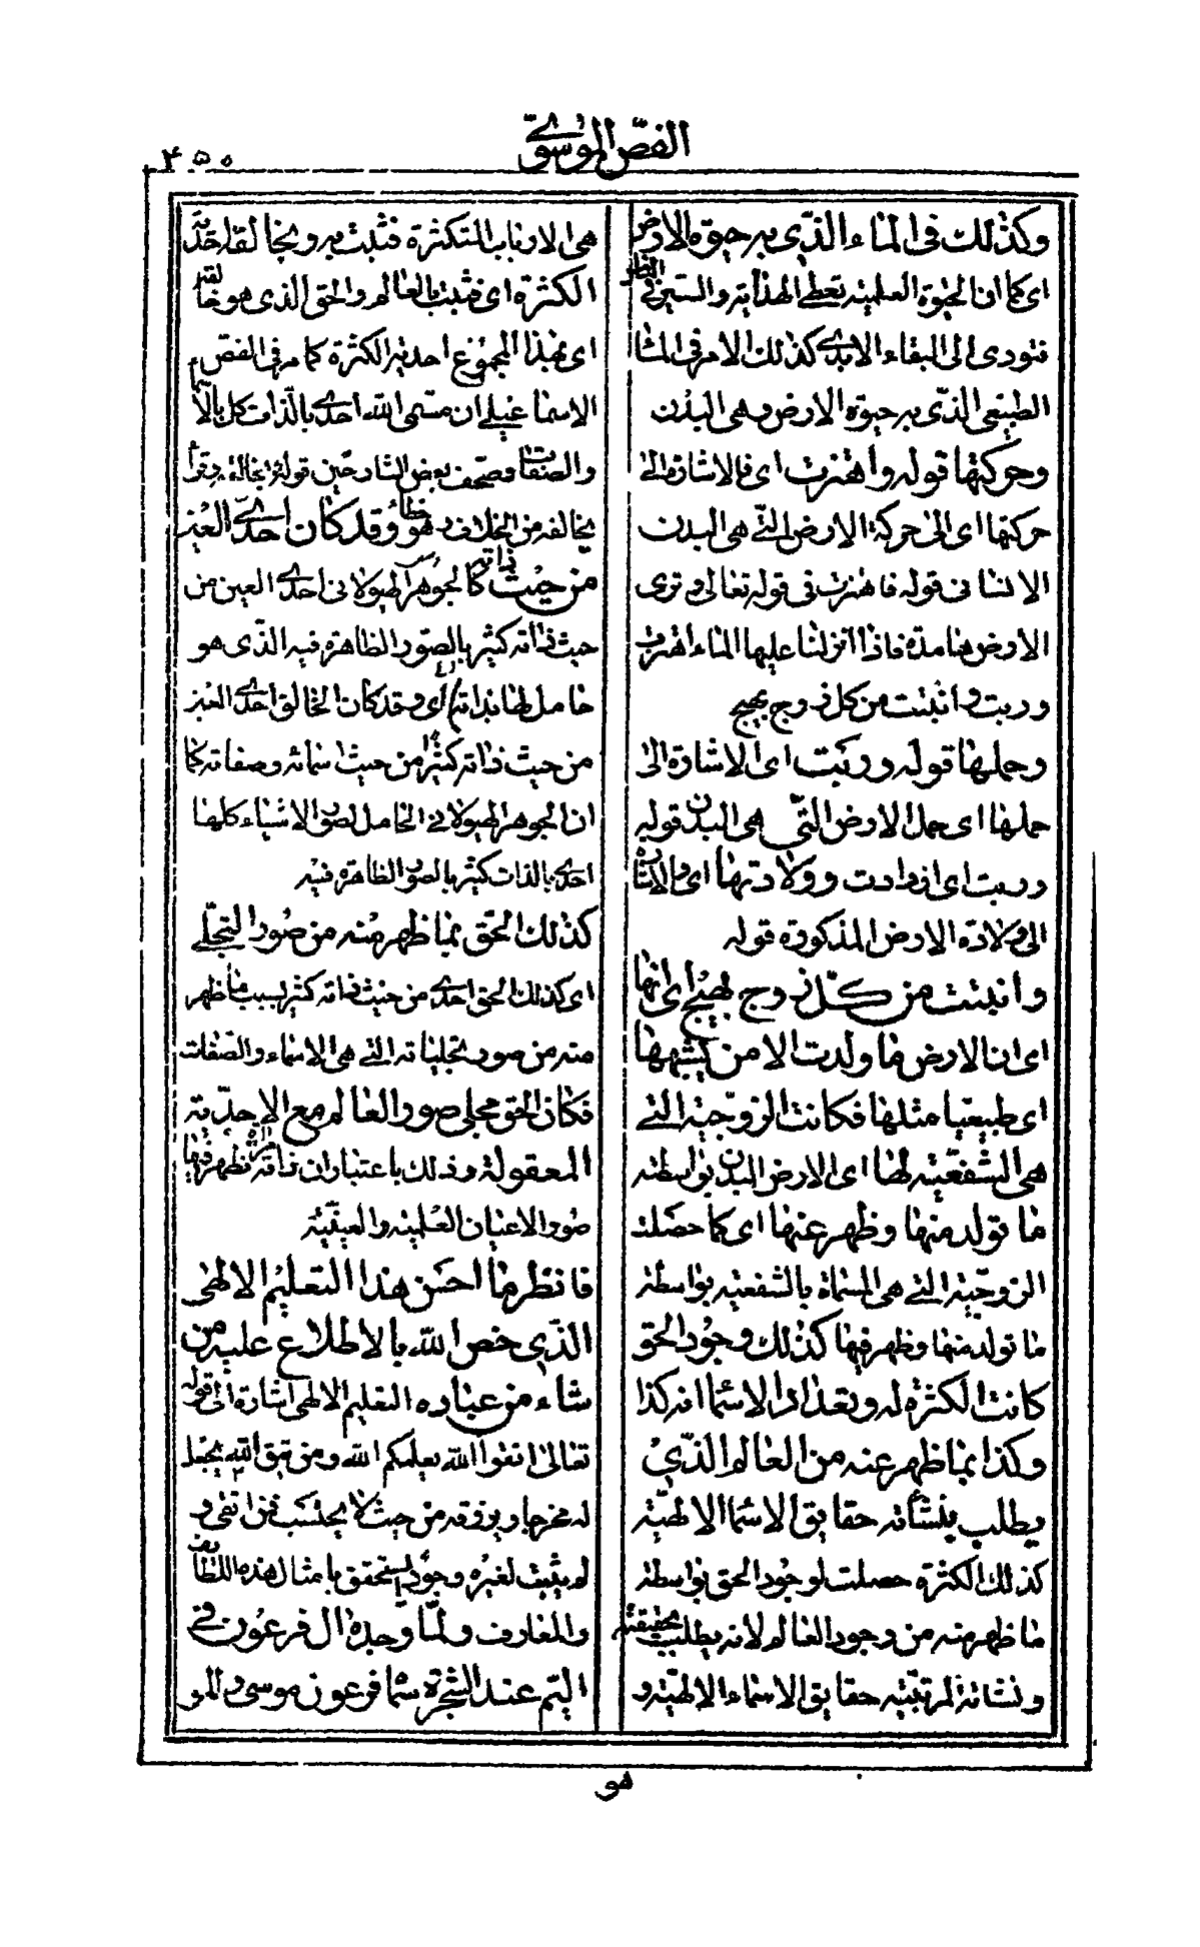 الفصّ الموسوي
٤٥٥
وكذلك فى الماء الذّى به حيوة الارض
اى كما ان الحيوة العلمية تعطى الهداية والستين فى
فتودى الى البقاء الابدى كذلك الامر فى الماء
الطبيعى الذى به حيوة الارض وهى البدن
وحركتها قوله واهتزت اى فالاشارة الى
حركتها اى الى حركة الارض التى هى البدن
الانسانى قوله فاهتزت فى قوله تعالى وترى
الارض هامدة فاذا انزلنا عليها الماء اهتزت
وربت وانبتت من كل زوج بهيج
وحملها قوله وربت اى الاشارة الى
حملها اى حمل الارض التى هى البدن قوله
وربت اى ازدادت وولادتها اى والاشارة
الى ولادة الارض المذكورة قوله
وانبتت من كلّ زوج بهيج اى انها
اى ان الارض ما ولدت الا من يشبهها
اى طبيعيا مثلها فكانت الزوجية التى
هى الشفعية لها اى الارض البدن بواسطة
ما تولد منها وظهر عنها اى كما حصلت
الزوجية التى هى المسماة بالشفعية بواسطة
ما تولد منها وظهر فيها كذلك وجود الحق
كانت الكثرة له وتعداد الاسما انه كذا
وكذا بما ظهر عنه من العالم الذى
يطلب بنشأته حقايق الاسما الالهيّة
كذلك الكثرة حصلت لوجود الحق بواسطة
ما ظهر منه من وجود العالم لانه يطلب بحقيقته
ونشاته المرتبية حقايق الاسماء الالهية و
هى الارباب المتكثرة فثبت به وبخالقه احدية
الكثرة اى فثبت بالعالم والحق الذى هو خالقه
اى بهذا المجموع احدية الكثرة كما مر فى الفص
الاسماعيلى ان مسمى الله احدى بالذات كل بالاسماء
والصفات وصحّف بعض الشارحين قوله بخالقه وقرأ
يخالفه من الخلاف وهو خطأ وقد كان احدى العين
من حيث ذاته كالجوهر الهيولانى احدى العين من
حيث ذاته كثير بالصور الظاهرة فيه الذى هو
حامل لها بذاته اى وقد كان الخالق احدى العين
من حيث ذاته كثيرا من حيث اسمائه وصفاته كما
ان الجوهر الهيولانى الحامل لصور الاشياء كلها
احدى بالذات كثير بالصور الظاهرة فيه
كذلك الحق بما ظهر منه من صور التجلى
اى كذلك الحق احدى من حيث ذاته كثير بسبب ما ظهر
منه من صور تجلياته التى هى الاسماء والصفات
فكان الحق مجلى صور العالم مع الاحدية
المعقولة وذلك باعتبار ان ذاته تظهر فيها
صور الاعيان العلمية والعينية
فانظر ما احسن هذا التعليم الالهى
الذى خص الله بالاطلاع عليه من
شاء من عباده التعليم الالهى اشارة الى قوله
تعالى اتقوا الله يعلمكم الله ومن يتق الله يجعل
له مخرجا ويرزقه من حيث لا يحتسب فمن اتقى و
لم يثبت لغيره وجودا يستحقق بامثال هذه اللطايف
والمعارف ولمّا وجده ال فرعون فى
اليمّ عند الشجرة سما فرعون موسى والمو
هو